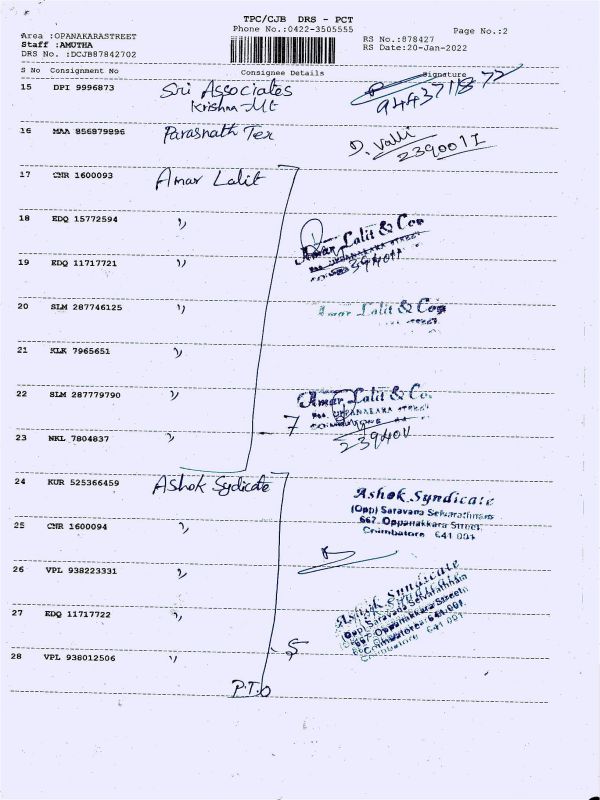 TPC/CJB DRS - PCT
Phone No.:0422-3505555
Page No.:2
Area :OPANAKARASTREET
Staff :AMUTHA
DRS No. :DCJB87842702
RS No.:878427
RS Date:20-Jan-2022
S No Consignment No Consignee Details Signature
15 DPI 9996873 Sri Associates
Krishna Mt
9443711872
16 MAA 856879896 Parasnath Tex
D. Valli
2390011
17 CNR 1600093 Amar Lalit
18 EDQ 15772594 "
Amar Lalit & Co
239401
19 EDQ 11717721 "
20 SLM 287746125 " Amar Lalit & Co
21 KLK 7965651 "
22 SLM 287779790 " Amar Lalit & Co.
23 NKL 7804837 " 7
239401
24 KUR 525366459 Ashok Sydicate
Ashok Syndicate
(Opp) Saravana Selvarathnam
667, Oppanakkara Street,
Coimbatore 641 001
25 CNR 1600094 "
26 VPL 938223331 "
Ashok Syndicate
(Opp) Saravana Selvarathnam
667, Oppanakkara Street,
Coimbatore 641 001.
27 EDQ 11717722 "
28 VPL 938012506 " 5
P.T.O